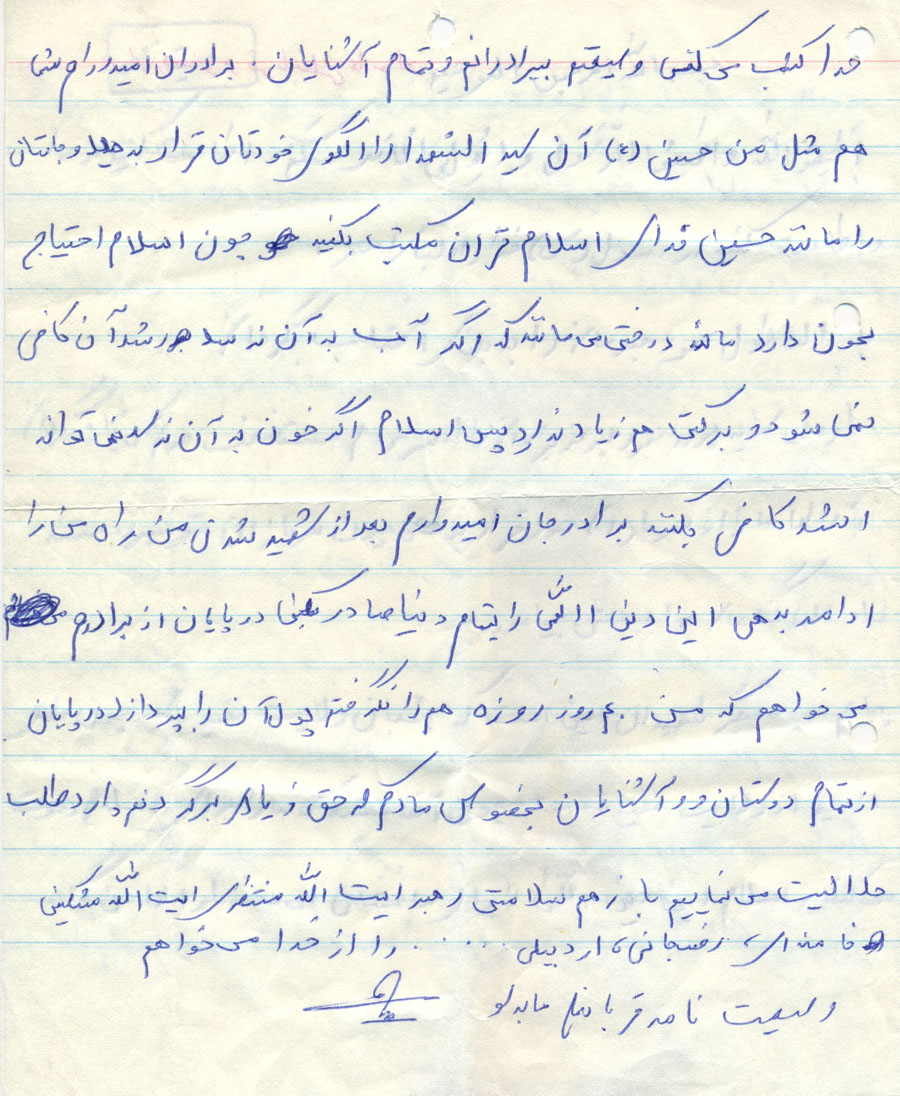 خدا کسب می کنی وصیتم ببرادرانم و تمام آشنایان. برادران امیدوارم شما
هم مثل من حسین (ع) آن سید الشهدا را الگوی خودتان قرار بدهید و جانتان
را مانند حسین فدای اسلام قرآن مکتب بکنید چون اسلام احتیاج
بخون دارد مانند درختی می ماند که اگر آب به آن نرسد رشد آن کافی
نمی شود و برکتی هم زیاد ندارد پس اسلام اگر خون به آن نرسد نمی تواند
رشد کافی بکند برادر جان امیدوارم بعد از شهید شدن من راه من را
ادامه بدهی این دین االهی را بتمام دنیا صادر بکنی در پایان از برادرم
می خواهم که من روز روزه هم را نگرفته پول آن را بپردازد در پایان
از تمام دوستان و و آشنایان بخصوص مادرم که حق زیادی بر گردنم دارد طلب
حلالیت می نماییم باز هم سلامتی رهبر ایت الله منتظری ایت الله مشکینی
خامنه ای، رفسجانی، اردبیلی ..... را از خدا می خواهم
وصیت نامه